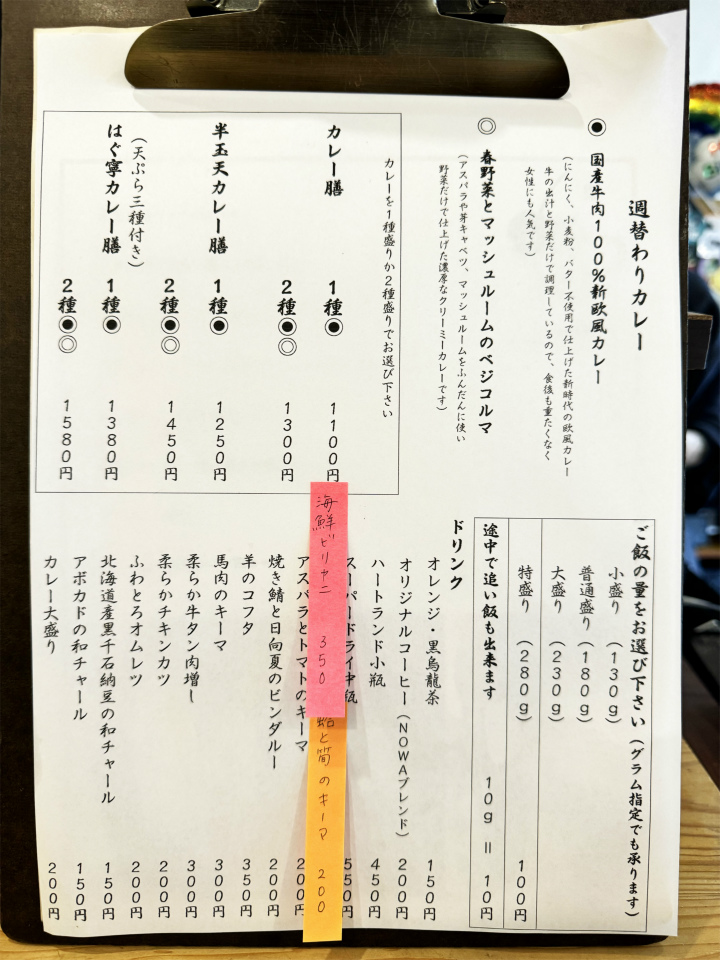 週替わりカレー
◉ 国産牛肉100%新欧風カレー
(にんにく、小麦粉、バター不使用で仕上げた新時代の欧風カレー
牛の出汁と野菜だけで調理しているので、食後も重たくなく
女性にも人気です)
◎ 春野菜とマッシュルームのベジコルマ
(アスパラや芽キャベツ、マッシュルームをふんだんに使い
野菜だけで仕上げた濃厚なクリーミーカレーです)
カレーを1種盛りか2種盛りでお選び下さい
カレー膳 1種◉ 1100円
2種◉◎ 1300円
半玉天カレー膳 1種◉ 1250円
2種◉◎ 1450円
(天ぷら三種付き)
はぐ寧カレー膳 1種◉ 1380円
2種◉◎ 1580円
ご飯の量をお選び下さい(グラム指定でも承ります)
小盛り (130g)
普通盛り (180g)
大盛り (230g)
特盛り (280g) 100円
途中で追い飯も出来ます 10g = 10円
ドリンク
オレンジ・黒烏龍茶 150円
オリジナルコーヒー(NOWAブレンド) 200円
ハートランド小瓶 450円
スーパードライ中瓶 550円
海鮮ビリヤニ 350
蛤と筍のキーマ 200
アスパラとトマトのキーマ 200円
焼き鯖と日向夏のビンダルー 200円
羊のコフタ 350円
馬肉のキーマ 300円
柔らか牛タン肉増し 300円
柔らかチキンカツ 200円
ふわとろオムレツ 200円
北海道産黒千石納豆の和チャール 150円
アボカドの和チャール 150円
カレー大盛り 200円